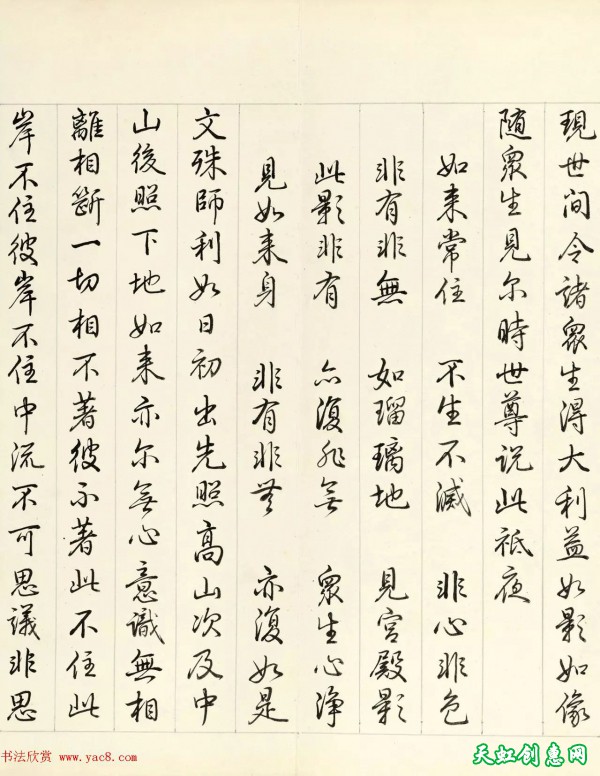 現世间令諸眾生得大利益如影如像
随眾生見尔時世尊説此祗夜
如来常住 不生不滅 非心非色
非有非無 如瑠璃地 見宫殿影
此影非有 亦復非無 眾生心浄
見如来身 非有非無 亦復如是
文殊師利如日初出先照高山次及中
山後照下地如来亦尔無心意識無相
離相斷一切相不著彼不著此不住此
岸不住彼岸不住中流不可思議非思
书法欣赏 www.yac8.com
天虹创惠网